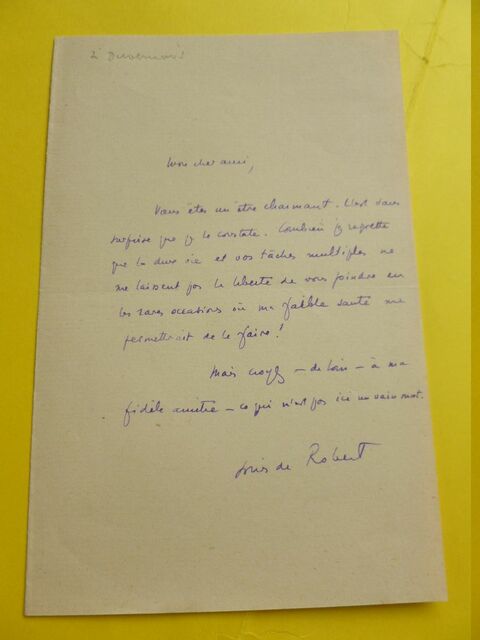 à Duvernois
Mon cher ami,
Vous êtes un être charmant. C'est sans
surprise que je le constate. Combien je regrette
que la dure vie et vos tâches multiples ne
me laissent pas la liberté de vous joindre en
les rares occasions où ma faible santé me
permettrait de le faire !
Mais croyez – de loin – à ma
fidèle amitié – ce qui n'est pas ici un vain mot.
Louis de Robert